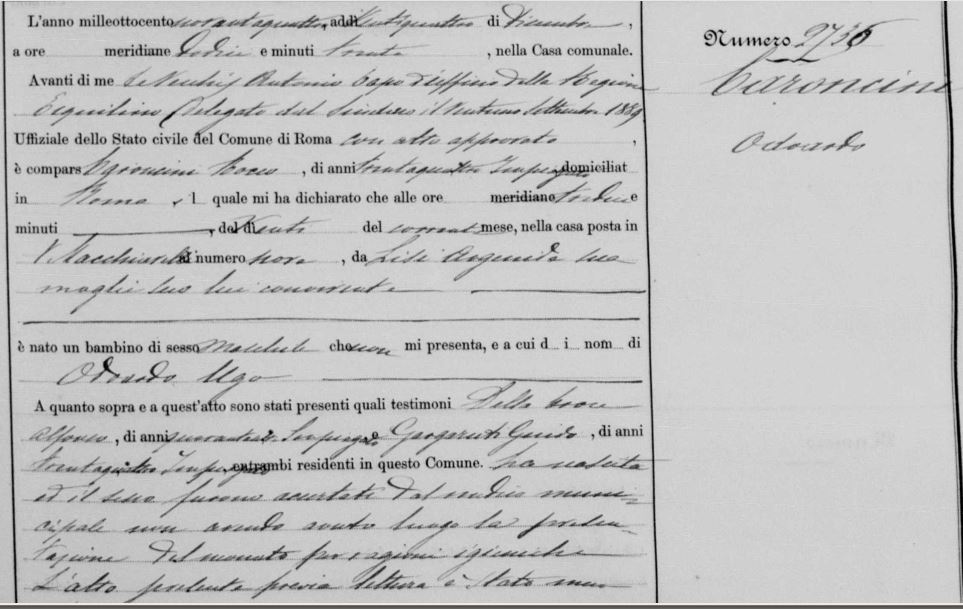 L'anno milleottocento novantaquattro, addì ventiquattro di Dicembre,
a ore meridiane dodici e minuti trenta, nella Casa comunale.
Avanti di me Antonio Capo d'Ufficio della Regione
Esquilino Delegato del Sindaco il ventuno Settembre 1889
Uffiziale dello Stato civile del Comune di Roma con atto approvato,
è compars Caroncini Rocco, di anni trentaquattro Impiegato domiciliat
in Roma, l quale mi ha dichiarato che alle ore meridiane tredici e
minuti, del dì venti del corrente mese, nella casa posta in
V. Macchiavelli al numero nove, da Lisi sua
moglie seco lui convivente
è nato un bambino di sesso maschile che non mi presenta, e a cui d i nom di
Odoardo Ugo
A quanto sopra e a quest'atto sono stati presenti quali testimoni Della
Alfonso, di anni Impiegato Guido, di anni
trentaquattro Impiegato, entrambi residenti in questo Comune. La nascita
ed il sesso furono accertati dal medico muni=
cipale non avendo avuto luogo la presen
tazione del neonato per ragioni igieniche
L'atto presente previa lettura è stato mu
Numero 2735
Caroncini
Odoardo